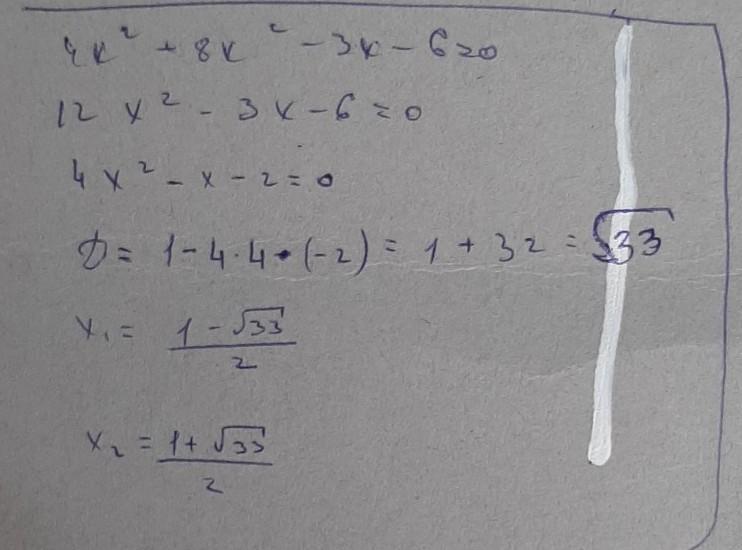 4x² + 8x² - 3x - 6 = 0
12 x² - 3x - 6 = 0
4x² - x - 2 = 0
D = 1 - 4 · 4 · (-2) = 1 + 32 = √33
x₁ = (1 - √33) / 2
x₂ = (1 + √33) / 2